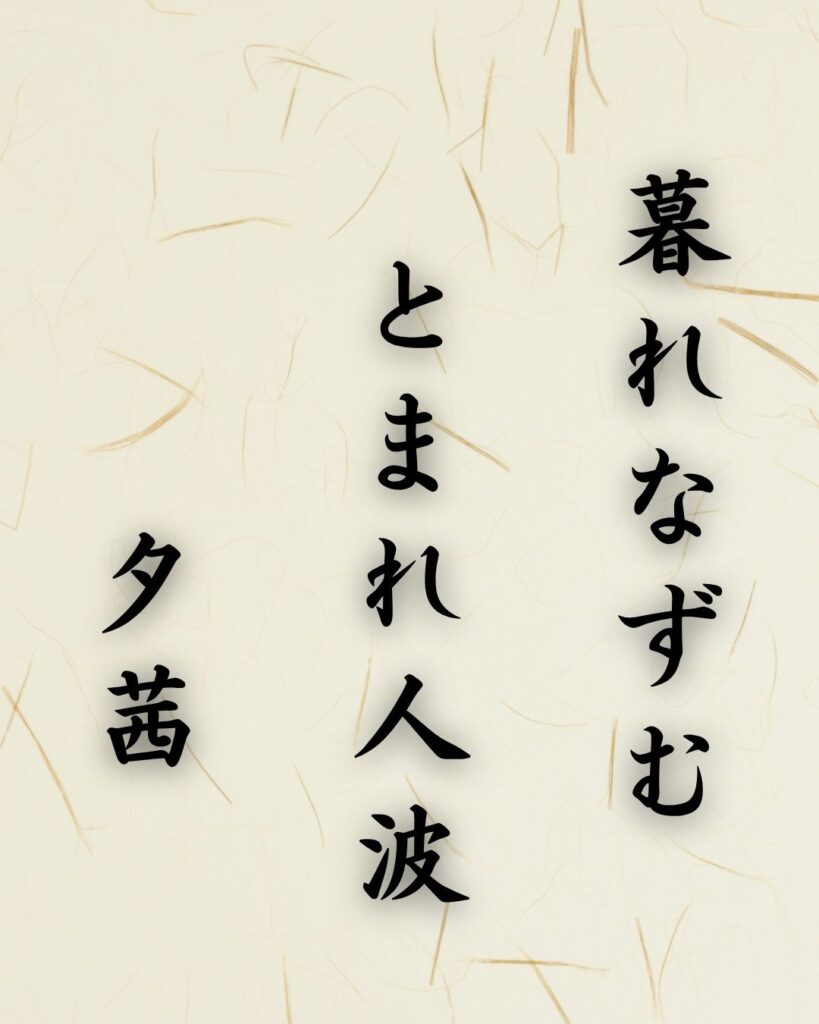 暮れなずむ
とまれ人波
夕茜